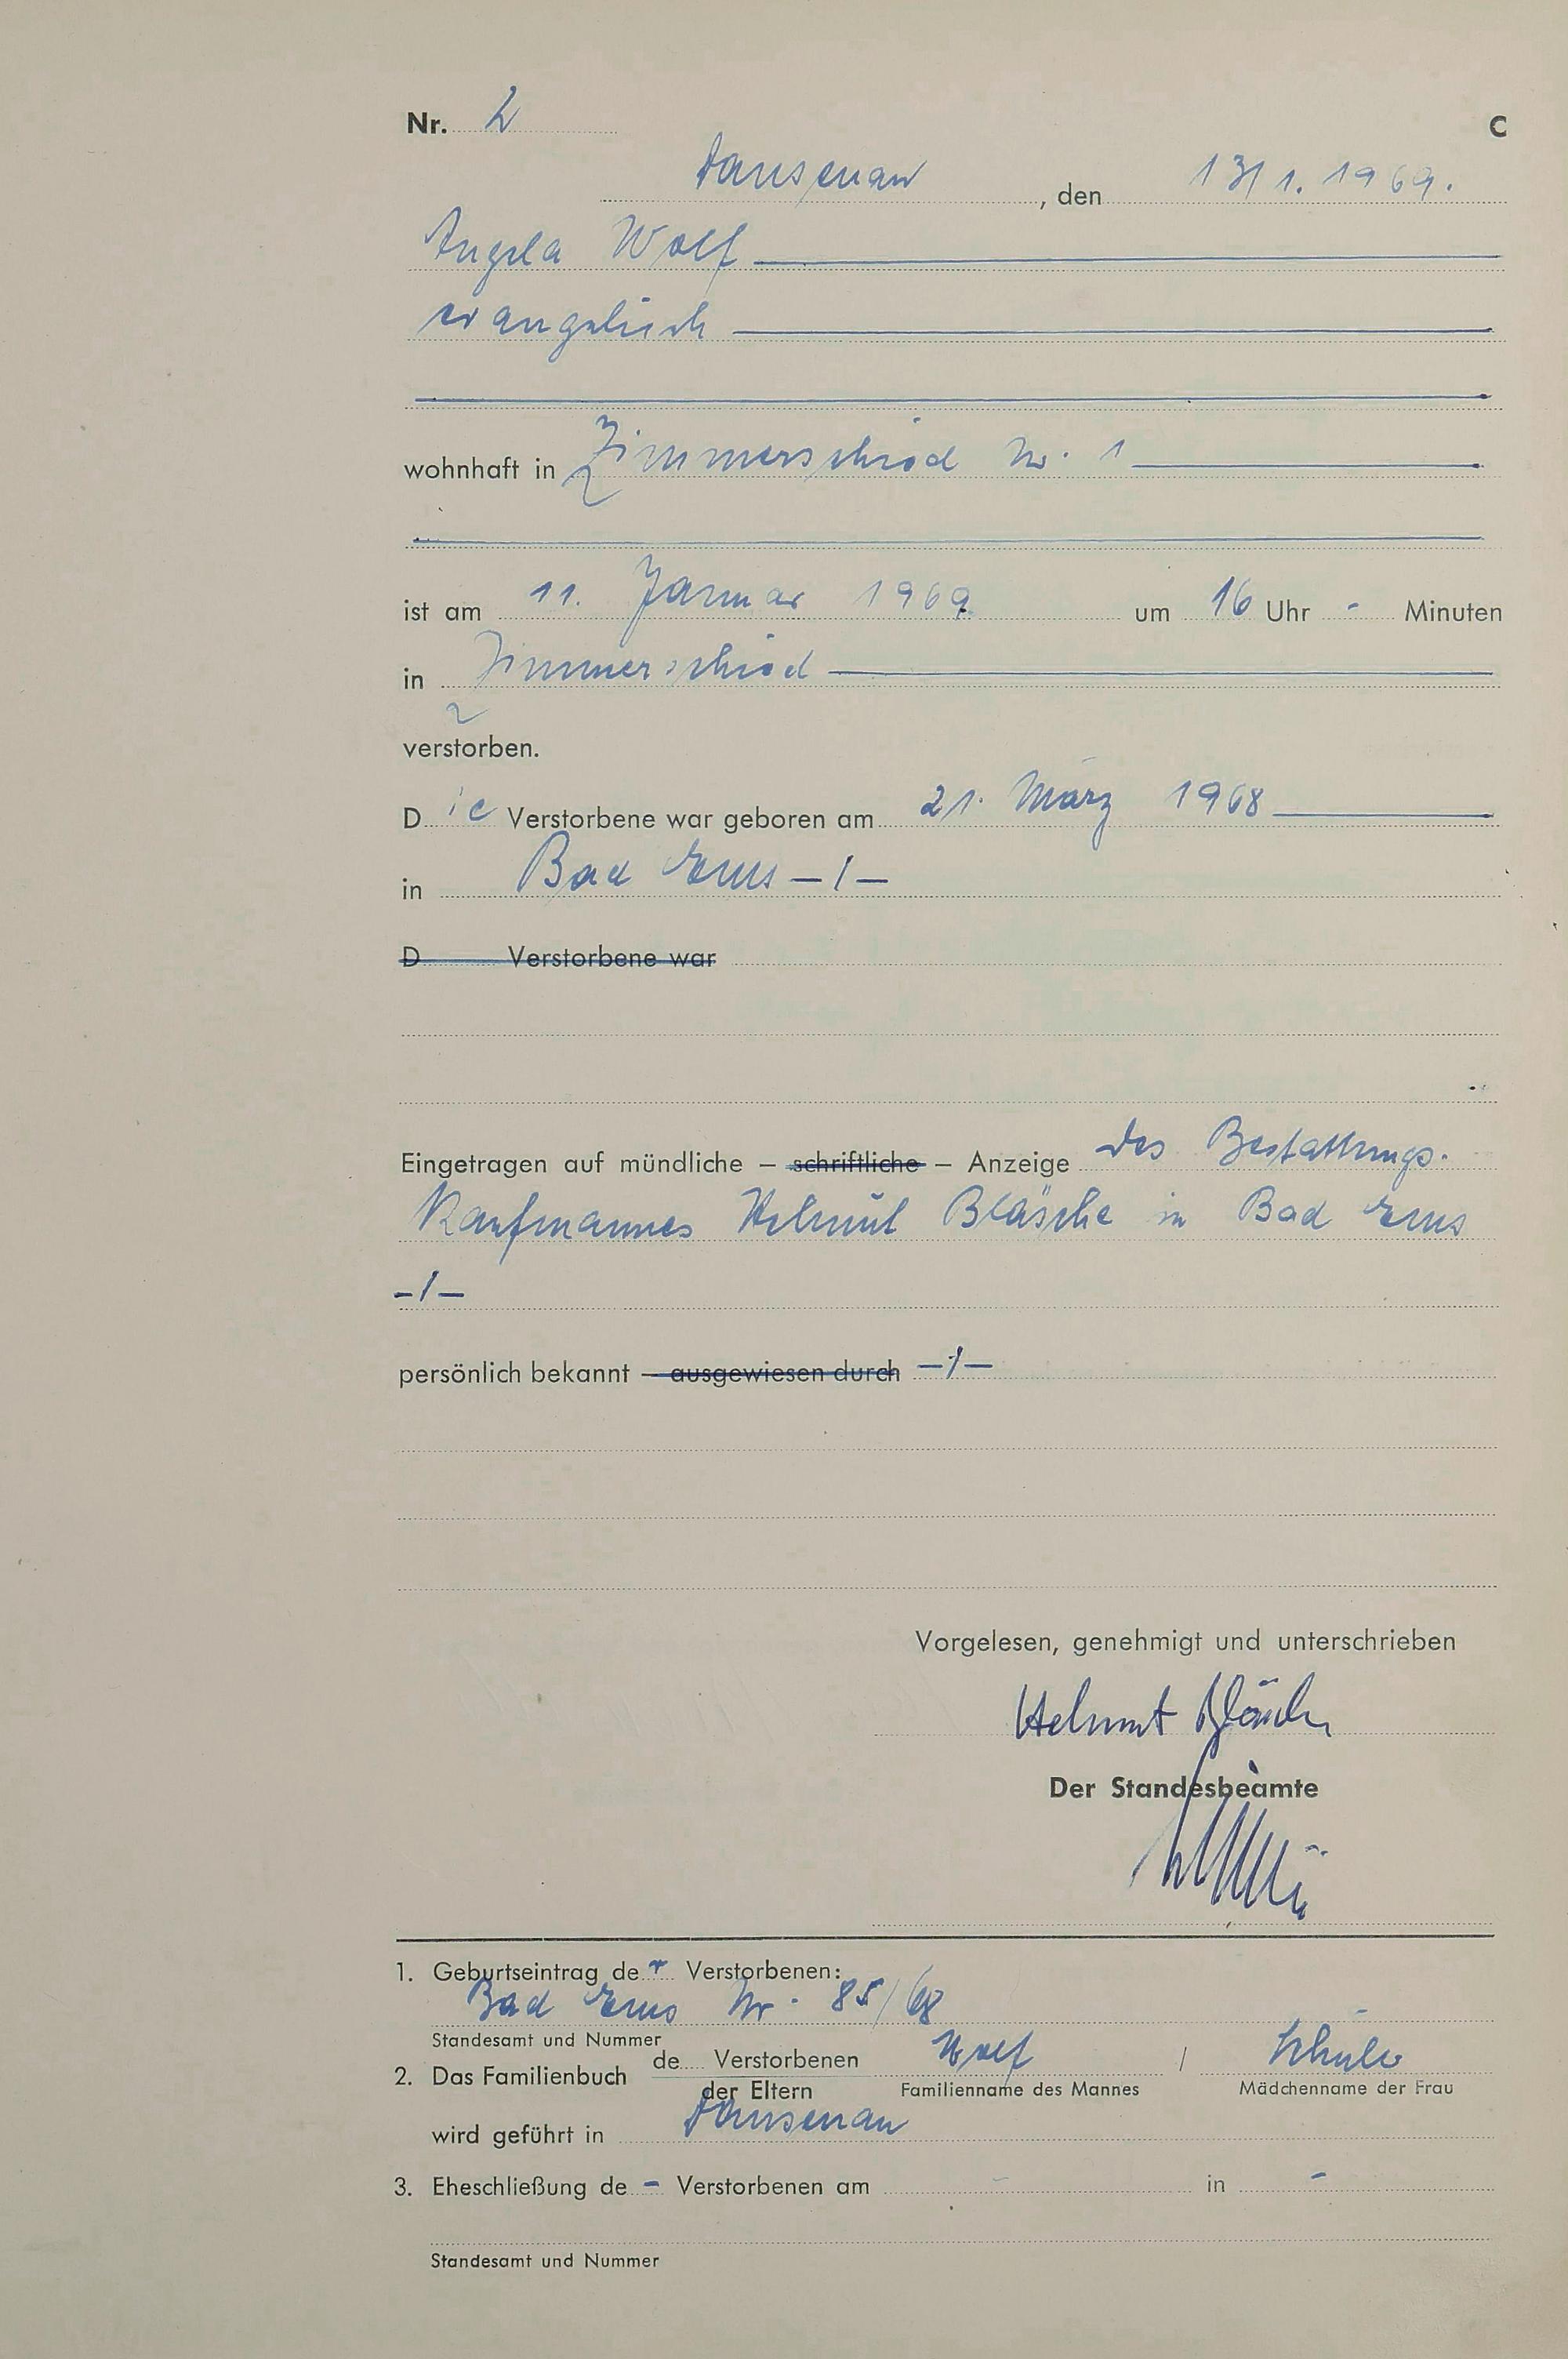 Nr. 2 C
Dausenau, den 13/1. 1969.
Angela Wolf
evangelisch
wohnhaft in Zimmerschied Nr. 1
ist am 11. Januar 1969 um 16 Uhr - Minuten
in Zimmerschied
verstorben.
Die Verstorbene war geboren am 21. März 1968
in Bad Ems -/-
D Verstorbene war
Eingetragen auf mündliche – schriftliche – Anzeige des Bestattungs-
Kaufmannes Helmut Bläsche in Bad Ems
-/-
persönlich bekannt – ausgewiesen durch -/-
Vorgelesen, genehmigt und unterschrieben
Helmut Bläsche
Der Standesbeamte
1. Geburtseintrag der Verstorbenen:
Bad Ems Nr. 85/68
Standesamt und Nummer
2. Das Familienbuch de Verstorbenen der Eltern Wolf / Schuler
Familienname des Mannes Mädchenname der Frau
wird geführt in Dausenau
3. Eheschließung de - Verstorbenen am - in -
Standesamt und Nummer